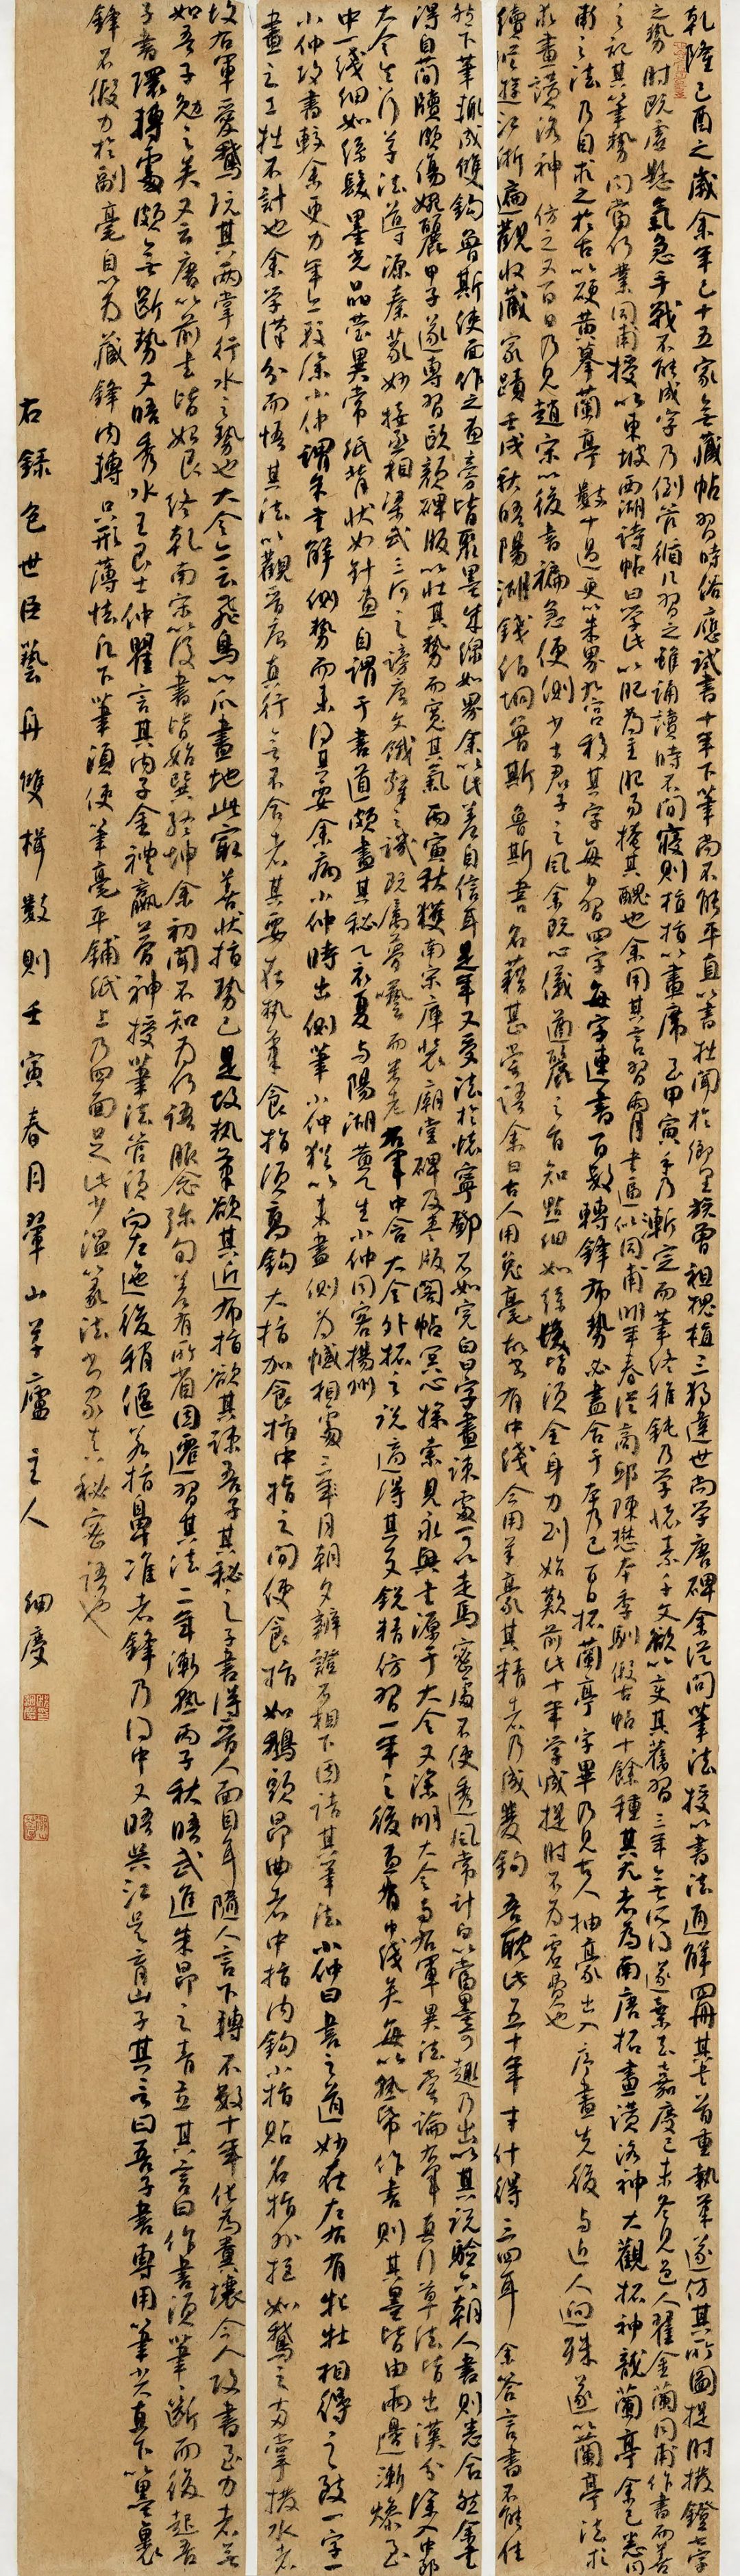 乾隆己酉之歲余年已十五家無藏帖習時俗應試書十年下筆尚不能平直以書拙聞於鄉里族曾祖槐植三獨違世尚學唐碑余從問筆法授以書法通解四冊其書首重執筆遂仿其所圖提肘撥鐙七字
之勢肘既虛懸氣急手戰不能成字乃倒管循几習之雖誦讀時不間寢則植指以畫席至甲寅手乃漸定而筆終稚鈍乃學懷素千文欲以變其舊習三年無所得遂棄去嘉慶己未冬見邑人翟金蘭同甫作書而善
之記其筆勢問當何業同甫授以東坡西湖詩帖曰學此以肥為主肥易掩其醜也余用其言習兩月書逼似同甫明年春從商邱陳懋本季馴假古帖十餘種其尤者為南唐拓畫讚洛神大觀拓神龍蘭亭余已悉同
甫之法乃自求之於古以硬黃摹蘭亭數十過更以朱界九宮移其字每日習四字每字連書百數轉鋒布勢必盡合于本乃已百日拓蘭亭字畢乃見古人抽豪出入序畫先後與近人迥殊遂以蘭亭法於
求畫讚洛神仿之又百日乃見趙宋以後書褊急便側少士君子之風余既心儀遒麗之旨知點細如絲髮皆須全身力到始歎前此十年學成提肘不為虛費也
續從遊江浙遍觀收藏家蹟壬戌秋晤陽湖錢伯坰魯斯魯斯書名藉甚嘗語余曰古人用兔毫故書有中綫今用羊豪其精者乃成雙鉤吾耽此五十年才什得三四耳余答言書不能佳
然下筆輒成雙鉤魯斯使面作之畫旁皆聚墨成線如界余以此差自信耳是年又受法於懷寧鄧石如完白曰字畫疎處可以走馬密處不使透風常計白以當墨奇趣乃出以其說驗六朝人書則悉合然余書
得自簡牘頗傷婉麗甲子遂專習歐顏碑版以壯其勢而寬其氣丙寅秋獲南宋庫裝廟堂碑及棗版閣帖冥心探索見永興書源于大令又深明大令與右軍異法嘗論右軍真行草法皆出漢分深入中郎
大令真行草法導源秦篆妙接丞相梁武三河之謗唐文餓隸之譏既屬夢囈而米老右軍中含大令外拓之說適得其反銳精仿習一年之後畫有中綫矣每以熟紙作書則其墨皆由兩邊漸燥至
中一綫細如絲髮墨光晶瑩異常紙背狀如針畫自謂于書道頗盡其秘乙亥夏與陽湖黃乙生小仲同客揚州
小仲攻書較余更力年亦較深小仲謂余書解側勢而未得其要余病小仲時出側筆小仲猶以未盡側為憾相處三年月朝夕辯證不相下因詰其筆法小仲曰書之道妙在左右有牝牡相得之致一字一
畫之工拙不計也余學漢分而悟其法以觀晉唐真行無不合者其要在執筆食指須高鉤大指加食指中指之間使食指如鵝頭昂曲者中指內鉤小指貼名指外拒如鵝之兩掌撥水者
故右軍愛鵝玩其兩掌行水之勢也大令亦云飛鳥以爪畫地此最善狀指勢已是故執筆欲其近布指欲其疎吾子其秘之子書得晉人面目耳隨人言下轉不數十年化為糞壤今人攻書至力者無
如吾子勉之矣又云唐以前書皆始艮終乾南宋以後書皆始巽終坤余初聞不知為何語服念彌旬差有所省因遷習其法二年漸熟丙子秋晤武進朱昂之青立其言曰作書須筆筆斷而後起吾
子書環轉處頗無斷勢又晤秀水王良士仲瞿言其內子金禮嬴夢神授筆法管須向左迤後稍偃若指鼻準者鋒乃得中又晤吳江吳育山子其言曰吾子書專用筆尖直下以墨裹
鋒不假力於副毫自以為藏鋒內轉只形薄怯凡下筆須使筆毫平鋪紙上乃四面足此少溫篆法書家真秘密語也
右錄包世臣藝舟雙楫數則壬寅春月翠山草廬主人細慶